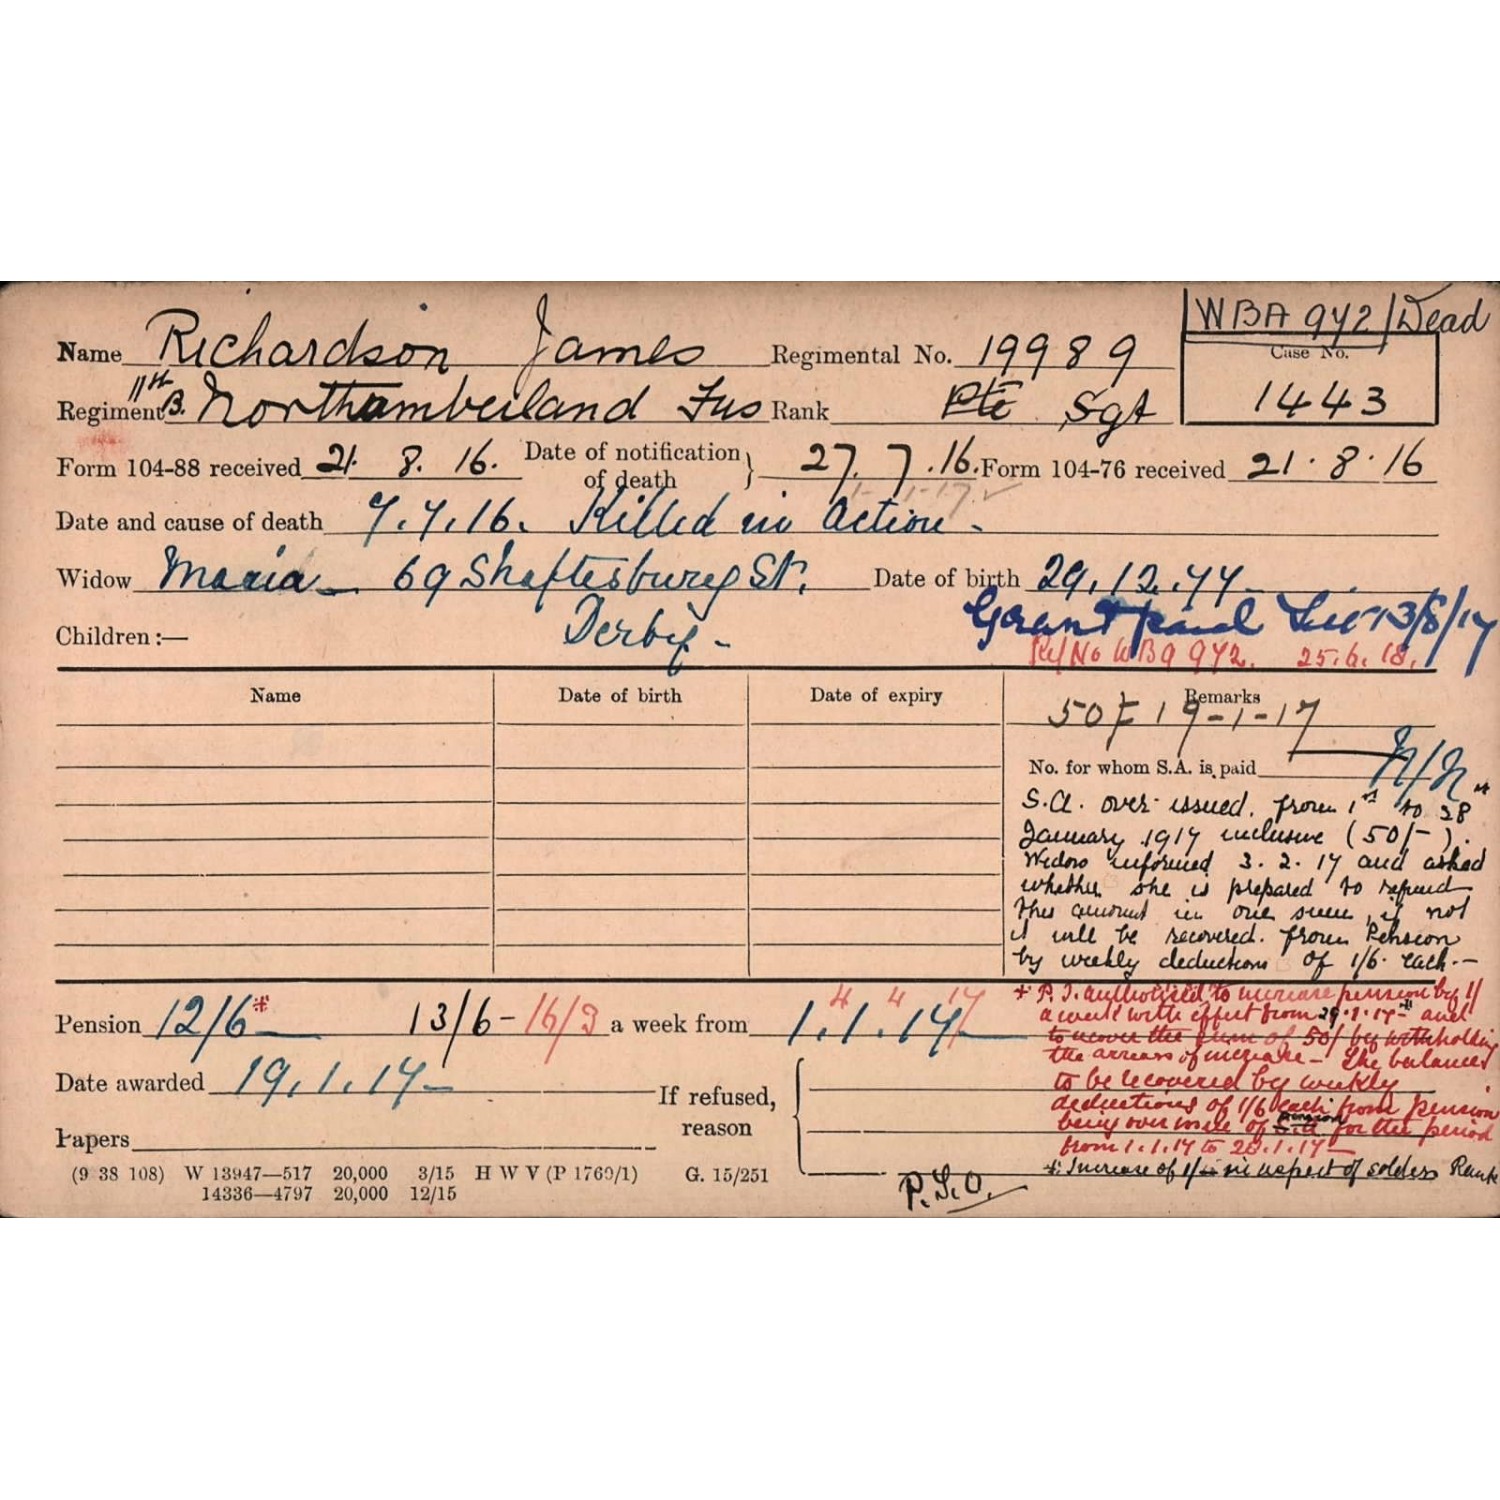 WBA 942 / Dead
Name Richardson James Regimental No. 19989
Case No.
1443
Regiment 11th B. Northamberland Fus Rank Pte Sgt
Form 104-88 received 21. 8. 16. Date of notification of death } 27. 7. 16. Form 104-76 received 21. 8. 16
1-1-17.
Date and cause of death 7.7.16. Killed in Action -
Widow Maria - 69 Shaftesbury St. Date of birth 29.12.77
Children :— Derby -
Grant paid 13/8/17
Ref/No WBA 942. 25.6.18.
Name Date of birth Date of expiry Remarks
19-1-17
No. for whom S.A. is paid
S.A. over issued from 1st to 28th
January 1917 inclusive (50/-).
Widow informed 3. 2. 17 and asked
whether she is prepared to refund
this amount in one sum, if not
it will be recovered from Pension
by weekly deductions of 1/6 each. -
Pension 12/6* 13/6 - 16/3 a week from 1.1.17 4 4 17
* P.I. authorised to increase pension by 1/
a week with effect from 29.1.17 and
to recover the sum of 50/ by withholding
the arrears of increase - The balance
to be recovered by weekly
deductions of 1/6 each from pension
being over issue of S.A. pension for the period
from 1.1.17 to 28.1.17 -
* Increase of 1/- in respect of soldiers Rank
Date awarded 19.1.17 -
If refused, reason
Papers
(9 38 108) W 13947—517 20,000 3/15 H W V (P 1760/1) G. 15/251
14336—4797 20,000 12/15
P.T.O.